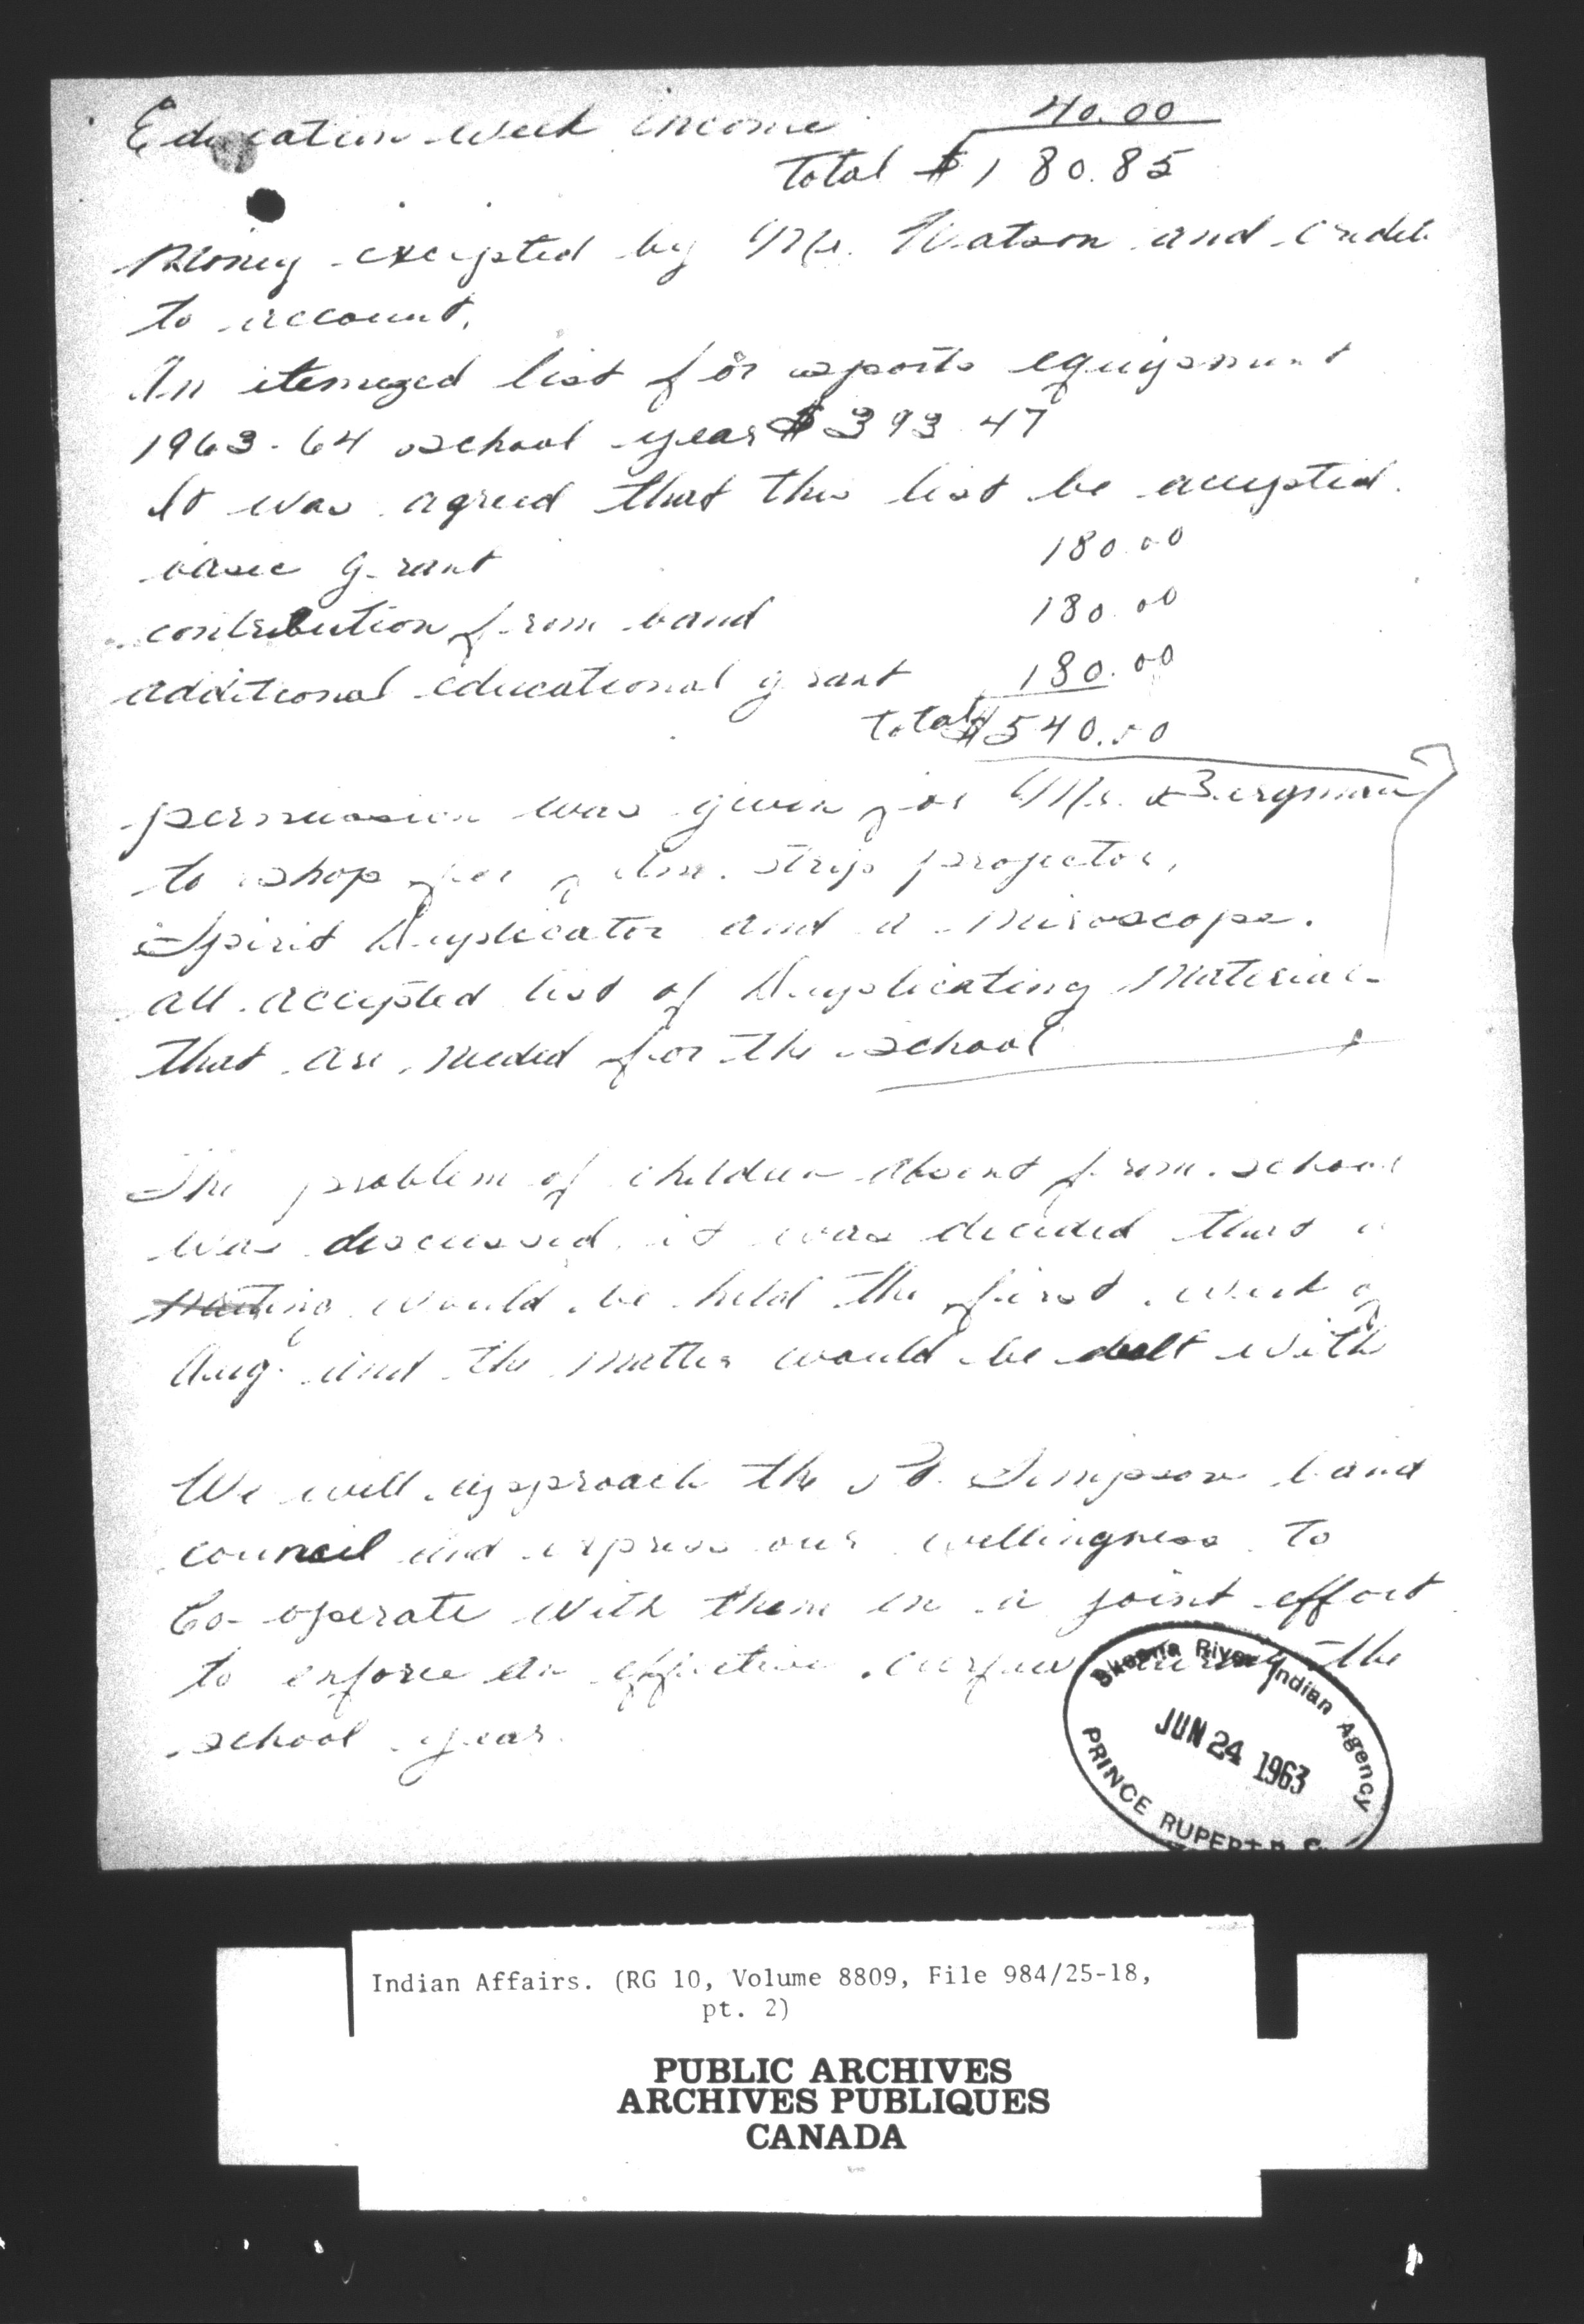 Education week income 40.00
Total $180.85
Money excepted by Mr. Watson and credit
to account.
An itemized list for sports equipment
1963-64 school year $393.47
It was agreed that this list be accepted.
basic grant 180.00
contribution from band 180.00
additional educational grant 180.00
Total $540.00
permission was given for Mr. Bergman
to shop for film strip projector,
Spirit Duplicator and a miroscope.
all accepted list of Duplicating Material
that are needed for the school
The problem of children absent from school
was discussed it was decided that a
meeting would be held the first week of
Aug. and the matter would be delt with
We will approach the Pt. Simpson band
council and express our willingness to
Co-operate with them in a joint effort
to enforce an effective curfew during the
school year.
Skeena River Indian Agency
JUN 24 1963
PRINCE RUPERT B. C.
Indian Affairs. (RG 10, Volume 8809, File 984/25-18,
pt. 2)
PUBLIC ARCHIVES
ARCHIVES PUBLIQUES
CANADA